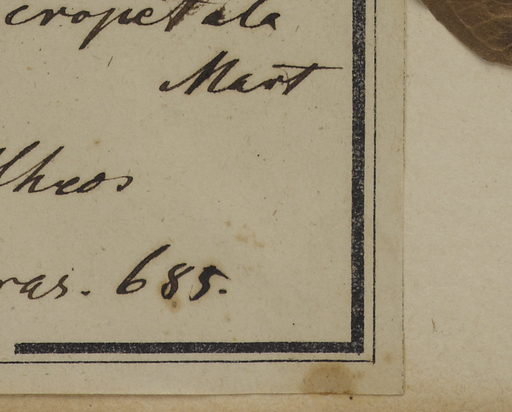 cropetala
Mart
Ilheos
ras. 685.